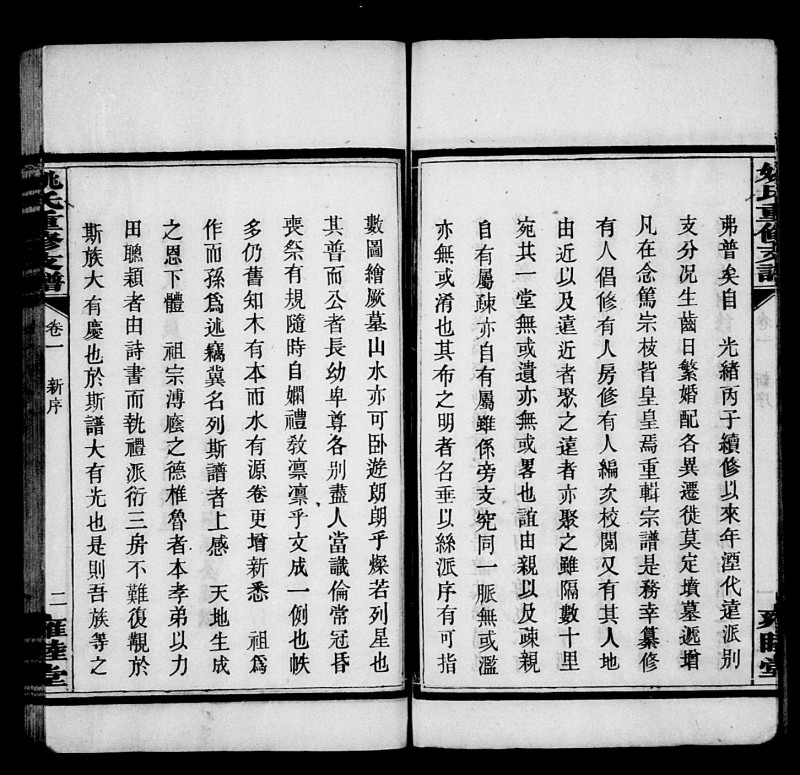 弗普矣自　光緒丙子續修以來年湮代遠派別
支分况生齒日繁婚配各異遷徙莫定墳墓遞增
凡在念篤宗枝皆皇皇焉重輯宗譜是務幸纂修
有人倡修有人房修有人編次校閱又有其人地
由近以及遠近者聚之遠者亦聚之雖隔數十里
宛共一堂無或遺亦無或畧也誼由親以及疎親
自有屬疎亦自有屬雖係旁支究同一脈無或濫
亦無或淆也其布之明者名垂以絲派序有可指
數圖繪厥墓山水亦可卧遊朗朗乎燦若列星也
其普而公者長幼卑尊各別盡人當識倫常冠昏
喪祭有規隨時自嫻禮教凛凛乎文成一例也帙
多仍舊知木有本而水有源卷更增新悉　祖爲
作而孫爲述竊冀名列斯譜者上感　天地生成
之恩下體　祖宗溥廕之德椎魯者本孝弟以力
田聰穎者由詩書而執禮派衍三房不難復覩於
斯族大有慶也於斯譜大有光也是則吾族等之
姚氏重修支譜
卷一　新序
二
雍睦堂